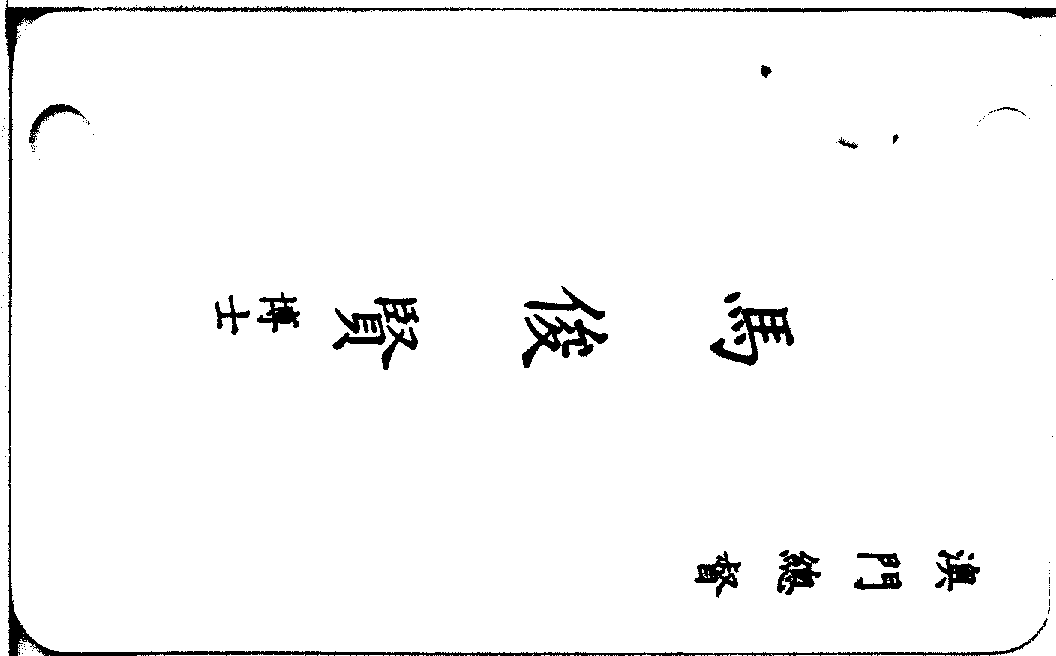 澳門總督
馬俊賢博士